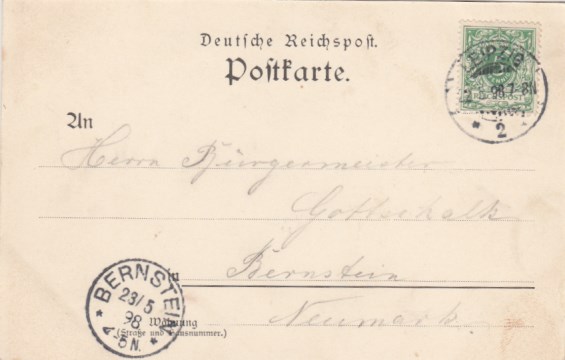 Deutſche Reichspoſt.
Poſtkarte.
LEIPZIG
98.7-8N
* 2 *
An
Herrn Bürgermeister
Gottschalk
in Bernstein
Neumark.
Wohnung
(Straße und Hausnummer.)
* BERNSTEIN *
23/5
98
4-5N.